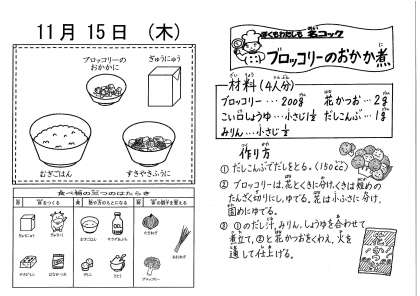 11月 15日 （木）
ブロッコリーの
おかかに
ぎゅうにゅう
むぎごはん
すきやきふうに
食べ物の三つのはたらき
ぎゅうにゅう
ぎゅうにく
むぎごはん
さとう
ブロッコリー
ぼくもわたしも 名コック
ブロッコリーのおかか煮
材料（4人分）
ブロッコリー…200g 花かつお…2g
こい口しょうゆ…小さじ1⅓ だしこんぶ…1g
みりん…小さじ⅓
作り方
① だしこんぶでだしをとる。（150cc）
② ブロッコリーは、花とくきに分け、くきは短めの
たんざく切りにし、ゆでる。花は小ふさに分け、
固めにゆでる。
③ ①のだし汁、みりん、しょうゆを合わせて
煮立て、②と花かつおをくわえ、火を
通して仕上げる。
花かつお